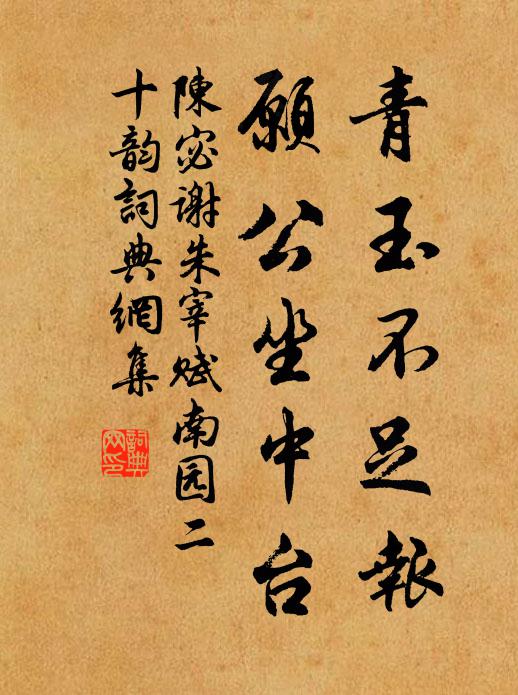 青玉不足報
願公坐中台
陳宓谢朱宰賦南园二
十韵詞典網集
詞典网印